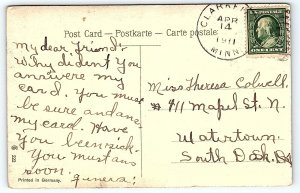 Post Card - Postkarte - Carte postale
CLARKFIELD
APR
14
1911
MINN.
U.S. POSTAGE
ONE CENT
my dear friend:
Why dident you
answere my
card. you must
be sure and ans
my card. Have
you been sick.
You must ans
soon.
Miss Theresa Colwell
# 411 Mapel St. N.
Watertown
South Dak.
Printed in Germany.